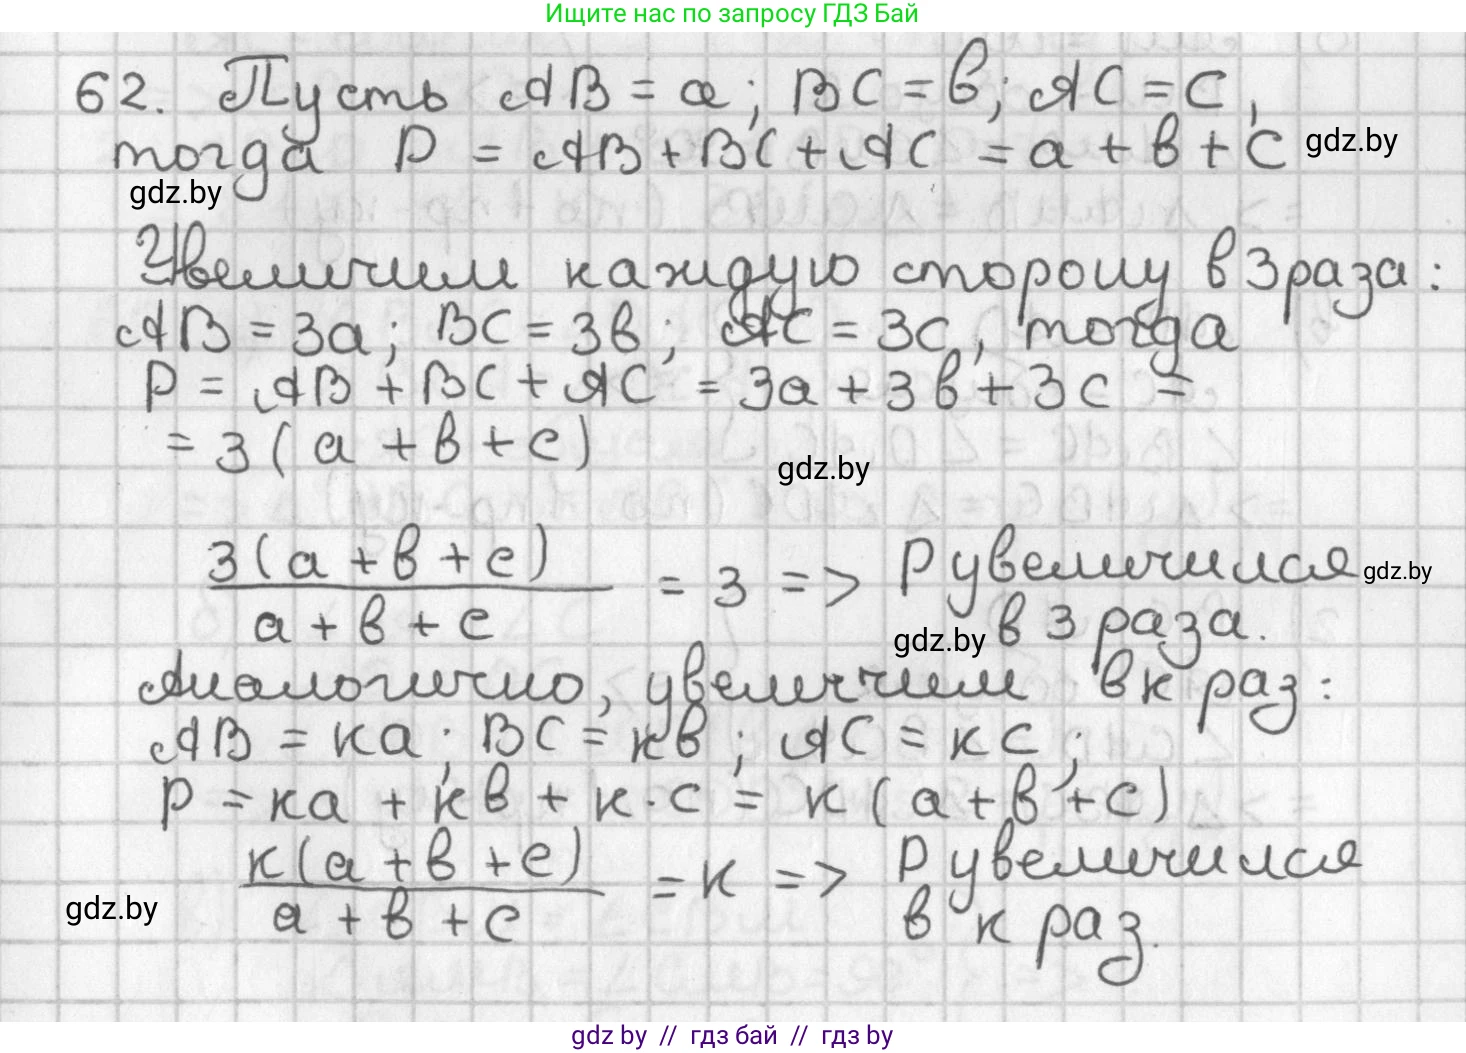 Ищите нас по запросу ГДЗ Бай
62. Пусть AB = a; BC = в; AC = c,
тогда P = AB + BC + AC = a + в + c
gdz.by
gdz.by
Увеличим каждую сторону в 3 раза:
AB = 3a; BC = 3в; AC = 3c, тогда
P = AB + BC + AC = 3a + 3в + 3c =
= 3(a + в + c)
gdz.by
3(a + в + c)
a + в + c
= 3 => P увеличился
gdz.by
в 3 раза.
gdz.by
Аналогично, увеличим в к раз:
AB = кa; BC = кв; AC = кc;
P = кa + кв + к·c = к(a + в + c)
к(a + в + c)
a + в + c
= к => P увеличился
в к раз.
gdz.by
gdz by // гдз бай // гдз by